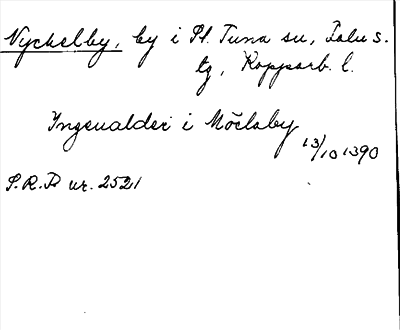 Nyckelby, by i St. Tuna sn, Falu s.
tg, Kopparb. l.
Ingeualder i Möclaby
13/10 1390
S.R.P nr. 2521